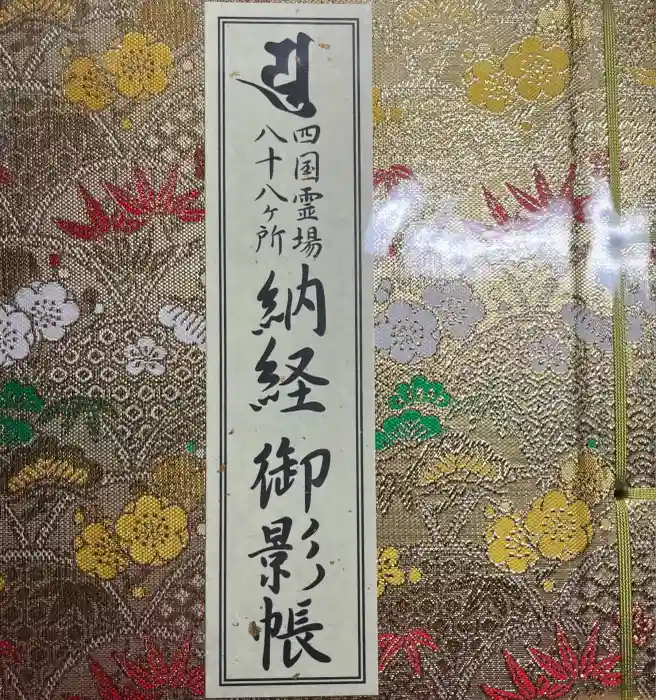 四国霊場
八十八ヶ所
納経 御影帳